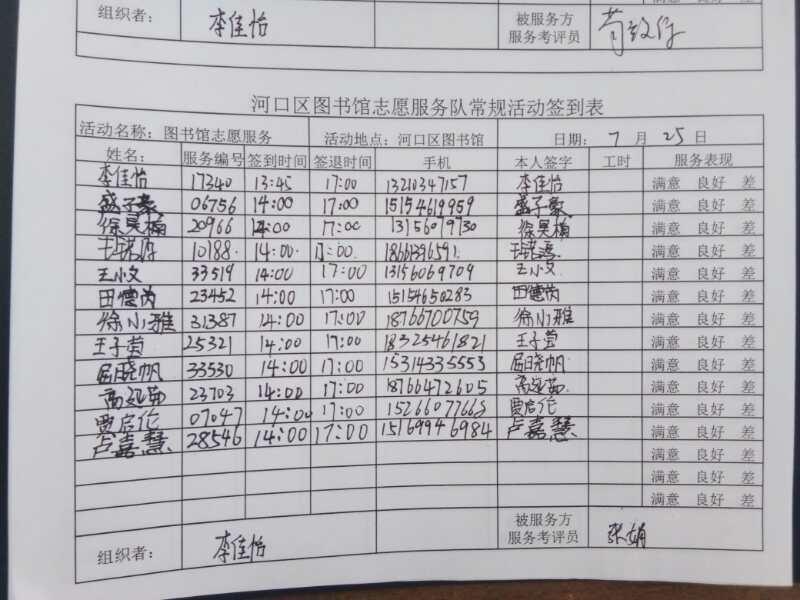 组织者： 李佳怡 被服务方 服务考评员
满意 良好 差
河口区图书馆志愿服务队常规活动签到表
活动名称：图书馆志愿服务 活动地点：河口区图书馆 日期：7月25日
姓名： 服务编号 签到时间 签退时间 手机 本人签字 工时 服务表现
李佳怡 17340 13:45 17:00 13210347157 李佳怡 满意 良好 差
盛子豪 06756 14:00 17:00 15154619959 盛子豪 满意 良好 差
徐昊楠 20966 14:00 17:00 13156079730 徐昊楠 满意 良好 差
10188 14:00 17:00 18661396591 满意 良好 差
王小文 33519 14:00 17:00 13156069709 王小文 满意 良好 差
田德芮 23452 14:00 17:00 15154650283 田德芮 满意 良好 差
徐小雅 31387 14:00 17:00 18766700759 徐小雅 满意 良好 差
王子莹 25321 14:00 17:00 18325461821 王子莹 满意 良好 差
屈晓帆 33530 14:00 17:00 15314335553 屈晓帆 满意 良好 差
23703 14:00 17:00 18766472605 满意 良好 差
贾启伦 07047 14:00 17:00 15266077668 贾启伦 满意 良好 差
卢嘉慧 28546 14:00 17:00 15169946984 卢嘉慧 满意 良好 差
满意 良好 差
满意 良好 差
组织者： 李佳怡 被服务方 服务考评员 张娟